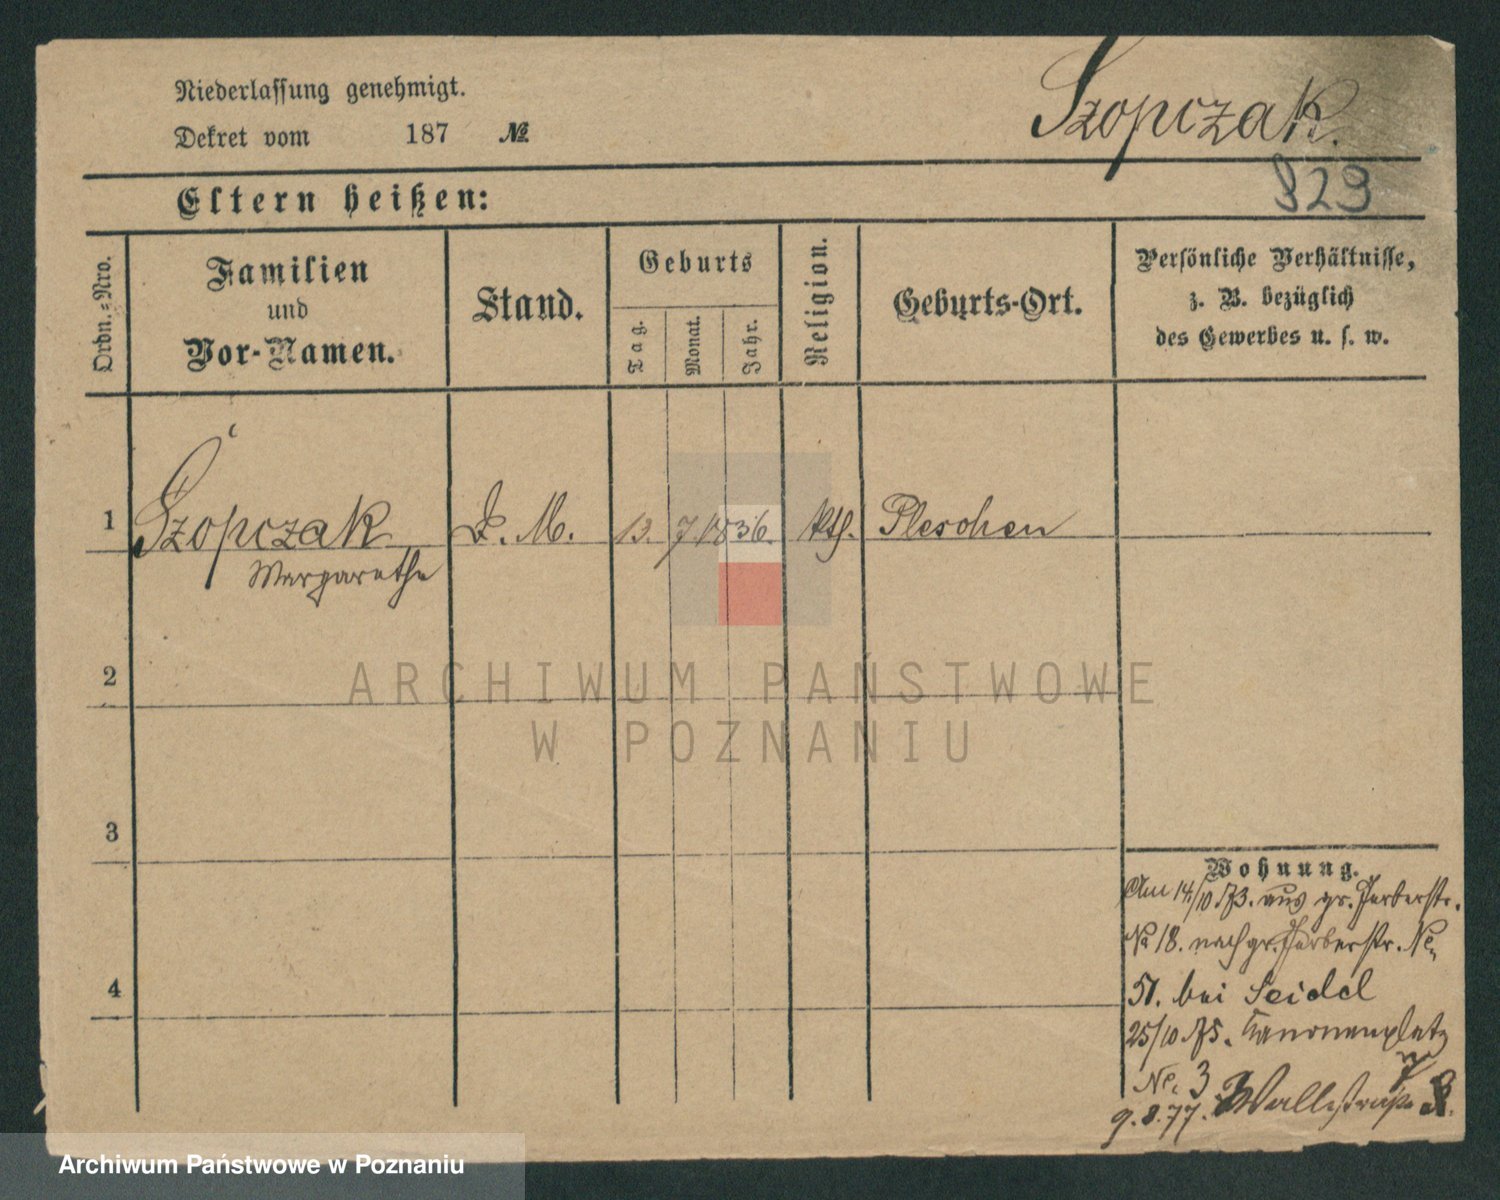 Niederlassung genehmigt.
Dekret vom 187 №
Szopczak.
829
Eltern heißen:
Ordn.-Nro.
Familien und Vor-Namen.
Stand.
Geburts
Tag.
Monat.
Jahr.
Religion.
Geburts-Ort.
Persönliche Verhältnisse,
z. B. bezüglich
des Gewerbes u. s. w.
1 Szopczak D. M. 13. 7. 1836. kth. Pleschen
Margarethe
2
3
4
Wohnung.
Am 14/10 73. aus gr. Gerberstr.
No 18. nach gr. Gerberstr. No
51. bei Seidel
25/10 75. Kanonenplatz
No. 3
9.8.77. Wallstraße
ARCHIWUM PAŃSTWOWE
W POZNANIU
Archiwum Państwowe w Poznaniu